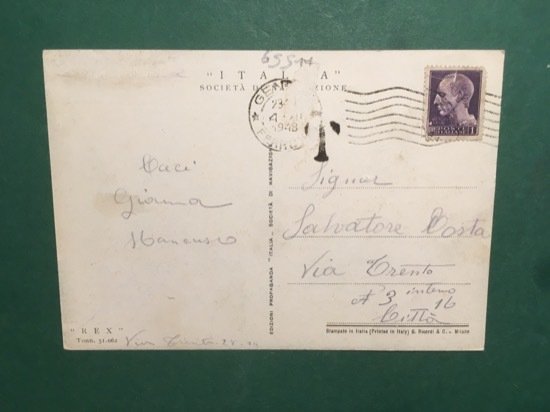 65544
"ITALIA"
SOCIETÀ DI NAVIGAZIONE
GENOVA
23
4
1948
T
Baci
Gianna
Mancuso
Signor
Salvatore Costa
Via Trento
N° 3 interno 16
Città
EDIZIONI PROPAGANDA "ITALIA„ SOCIETÀ DI NAVIGAZIONE
"REX"
Tonn. 51.062
Stampate in Italia (Printed in Italy) G. Ricordi & C. - Milano